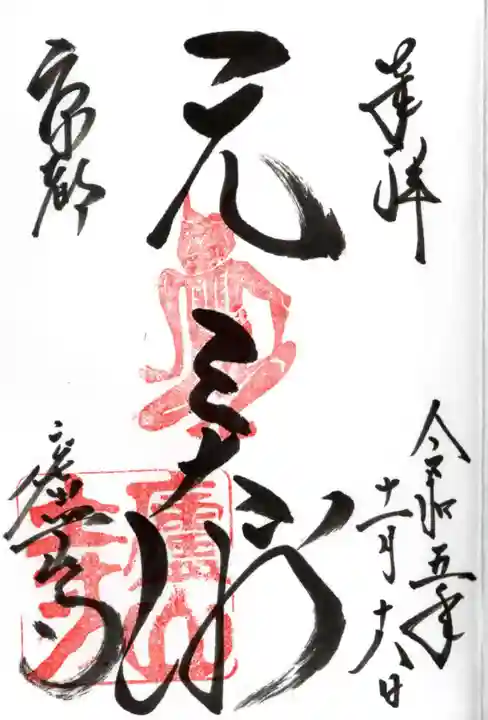 奉拝
令和五年
十一月十八日
元三大師
京都
廬山寺
廬山寺